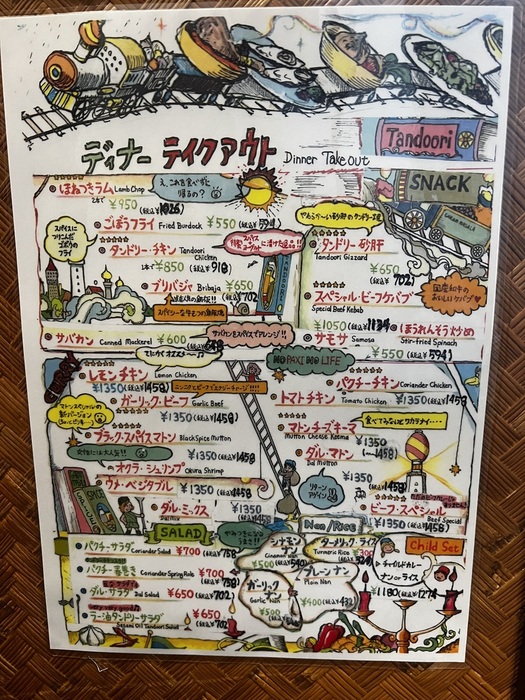 ディナー テイクアウト Dinner Take out
Tandoori
SNACK
ほねつきラム Lamb Chop
2本で ¥950 (税込¥1026)
え、これを食べずに帰るの?
ごぼうフライ Fried Burdock ¥550 (税込¥594)
タンドリー・チキン Tandoori Chicken
1本で ¥850 (税込¥918)
ブリバジャ Bribaja ¥650 (税込¥702)
スパイシーな
サバカン Canned Mackerel ¥600 (税込¥648)
サバカンをスパイスでアレンジ!!
タンドリー砂肝
Tandoori Gizzard
¥650 (税込¥702)
スペシャル・ビーフケバブ
Special Beef Kebab
¥1050 (税込¥1134)
国産和牛のおいしいケバブ
サモサ Samosa
ほうれんそう炒め
Stir-fried Spinach
¥550 (税込¥594)
CURRY
NO PAXI NO LIFE
レモンチキン Lemon Chicken
¥1350 (税込¥1458)
ガーリック・ビーフ Garlic Beef
¥1350 (税込¥1458)
ブラック・スパイスマトン Black Spice Mutton
¥1350 (税込¥1458)
女性には大人気!!
オクラ・シュリンプ Okura Shrimp
ウメ・ベジタブル ¥1350 (税込¥1458)
ダル・ミックス
Dal Mix
¥1350 (税込¥1458)
パクチーチキン Coriander Chicken
トマトチキン Tomato Chicken ¥1350 (税込¥1458)
食べてみないとワカラナイ・・・・
マトンチーズキーマ
Mutton Cheese Keema
¥1350
ダル・マトン (税込¥1458)
Dal Mutton
¥1350 (税込¥1458)
リターンアゲイン
ビーフ・スペシャル
Beef Special
¥1350 (税込¥1458)
SALAD
パクチーサラダ Coriander Salad ¥700 (税込¥756)
パクチー春巻き Coriander Spring Rolls ¥700 (税込¥756)
ダル・サラダ Dal Salad ¥650 (税込¥702)
ラー油タンドリーサラダ ¥650 (税込¥702)
Sesami Oil Tandoori Salad
Nan/Rice
シナモンナン
Cinnamon Nan
¥500 (税込¥540)
ターメリック・ライス
Turmeric Rice ¥300
プレーンナン
Plain Nan
¥400 (税込¥432)
ガーリックナン
Garlic Nan
¥500
Child Set
チャイルドカレー
ナン or ライス
¥1180 (税込¥1274)